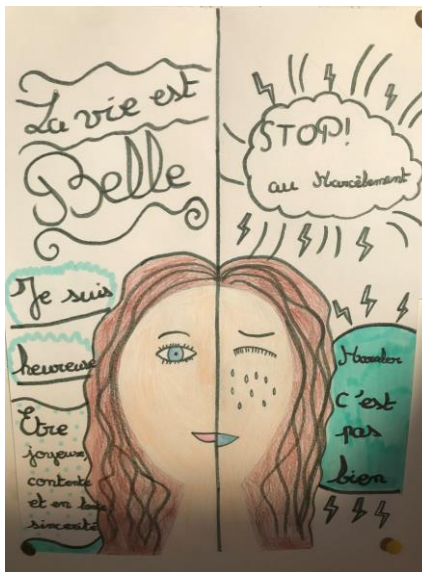 La vie est
Belle
Je suis
heureuse
Etre
joyeuse,
contente
et en toute
sincérité
STOP!
au Harcèlement
Harceler
C'est
pas
bien